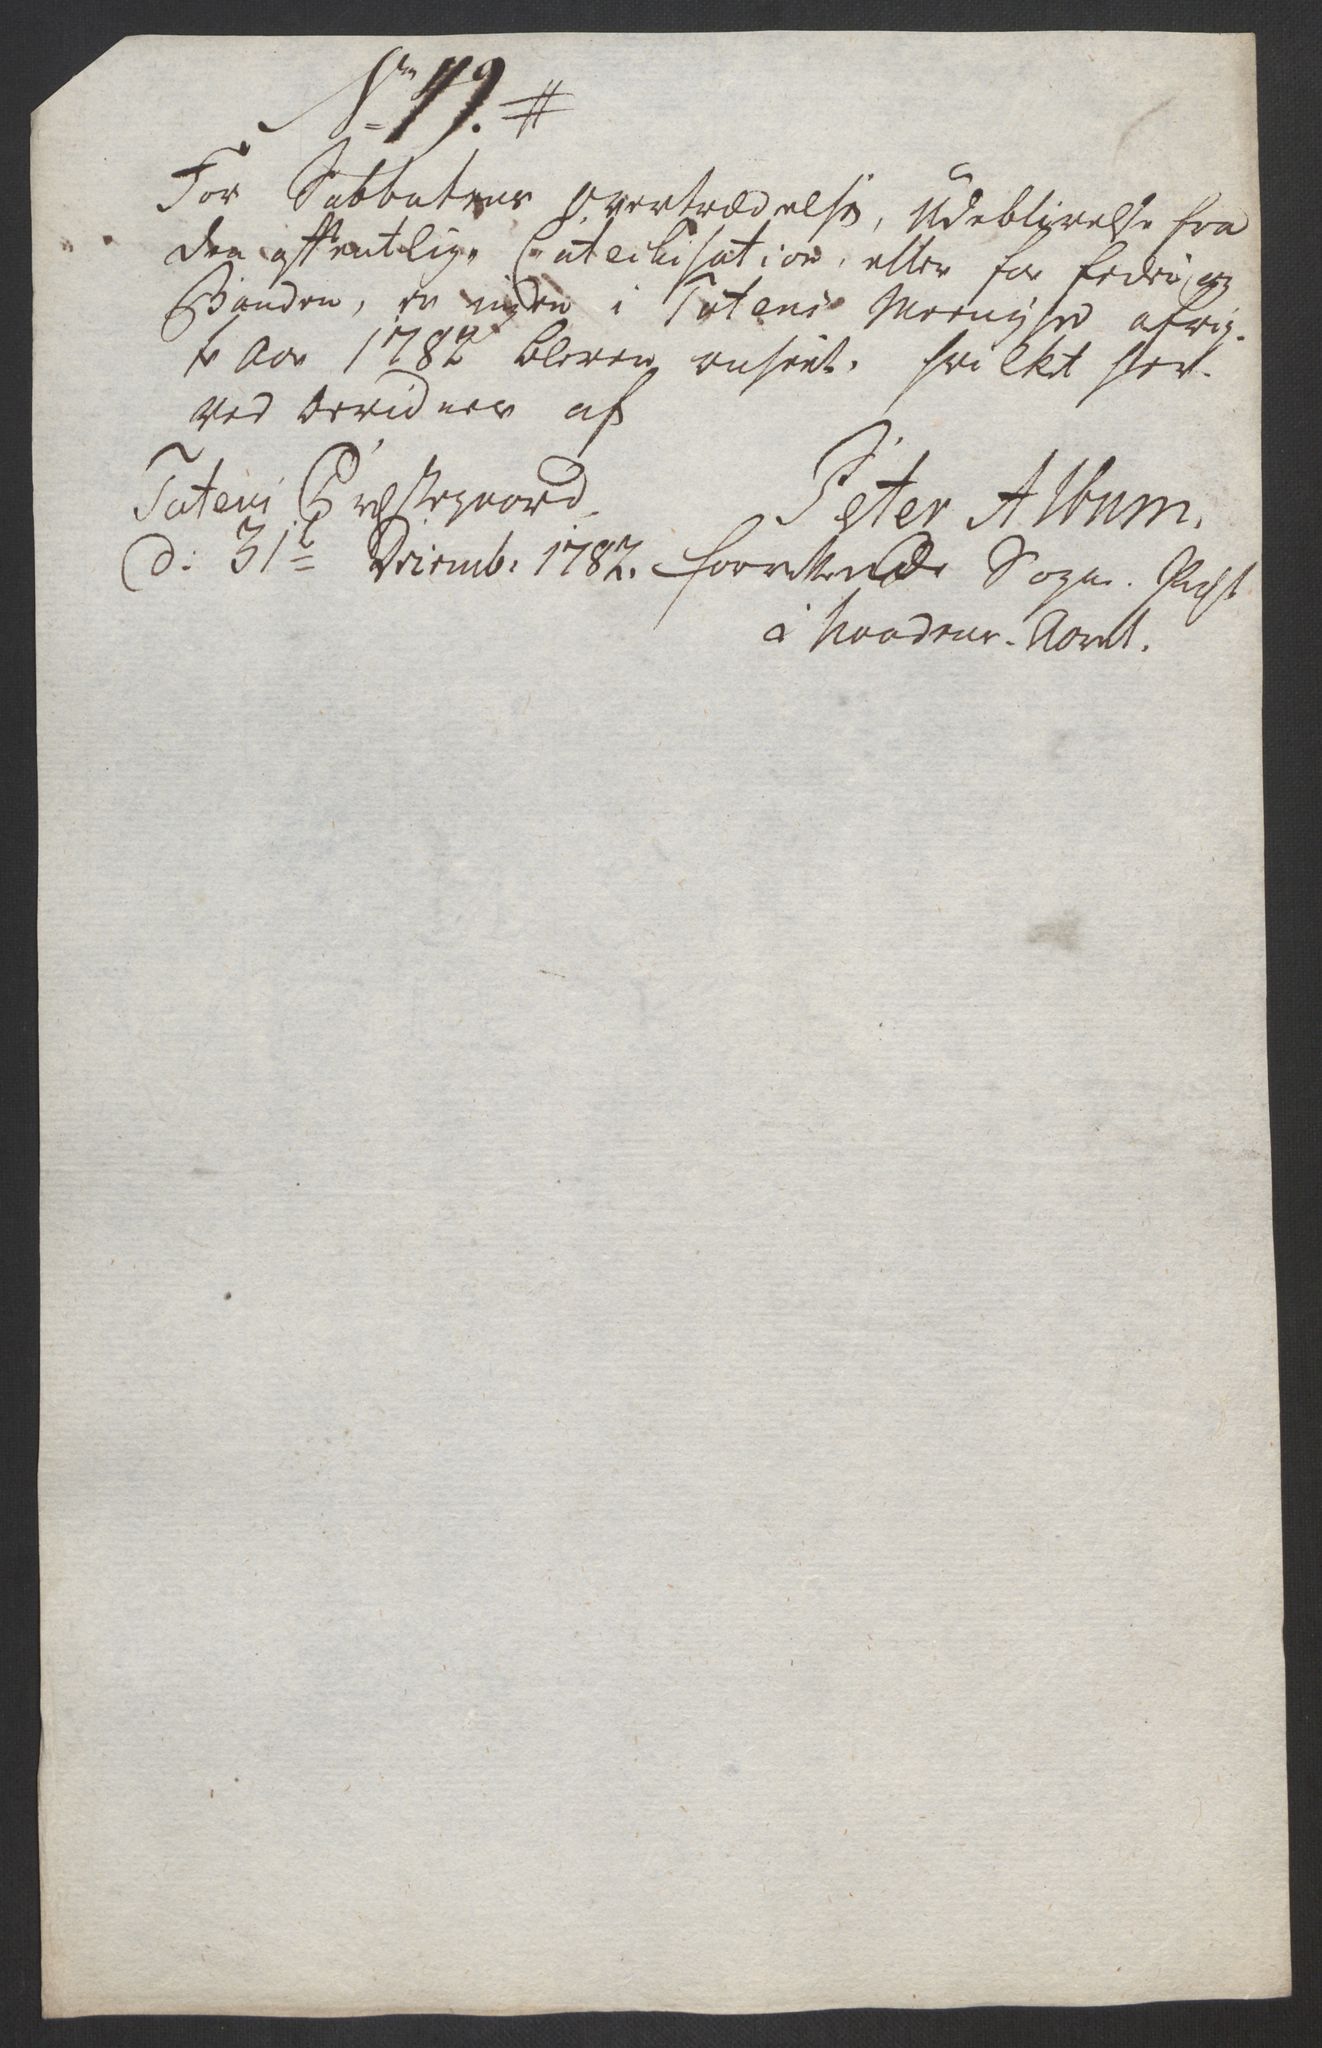 No 79. #
For Sabbatens overtrædelse, Udeblivelse fra
den offentlige Catechisation, eller for Eeder og
Banden, er ingen i Totens Meenighed afvig-
te Aar 1782 bleven anseet. hvilket her-
ved bevidnes af
Totens Præstegaard
d: 31te Decemb: 1782.
Peter Abum.
forrettende Sogne-Præst
i Naadens-Aaret.